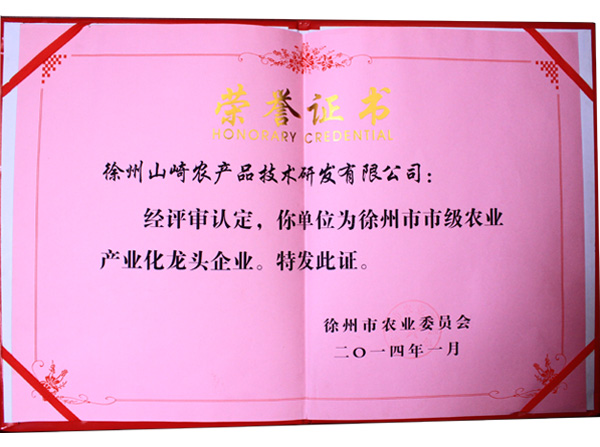 荣誉证书
HONORARY CREDENTIAL
徐州山崎农产品技术研发有限公司：
经评审认定，你单位为徐州市市级农业
产业化龙头企业。特发此证。
徐州市农业委员会
二〇一四年一月